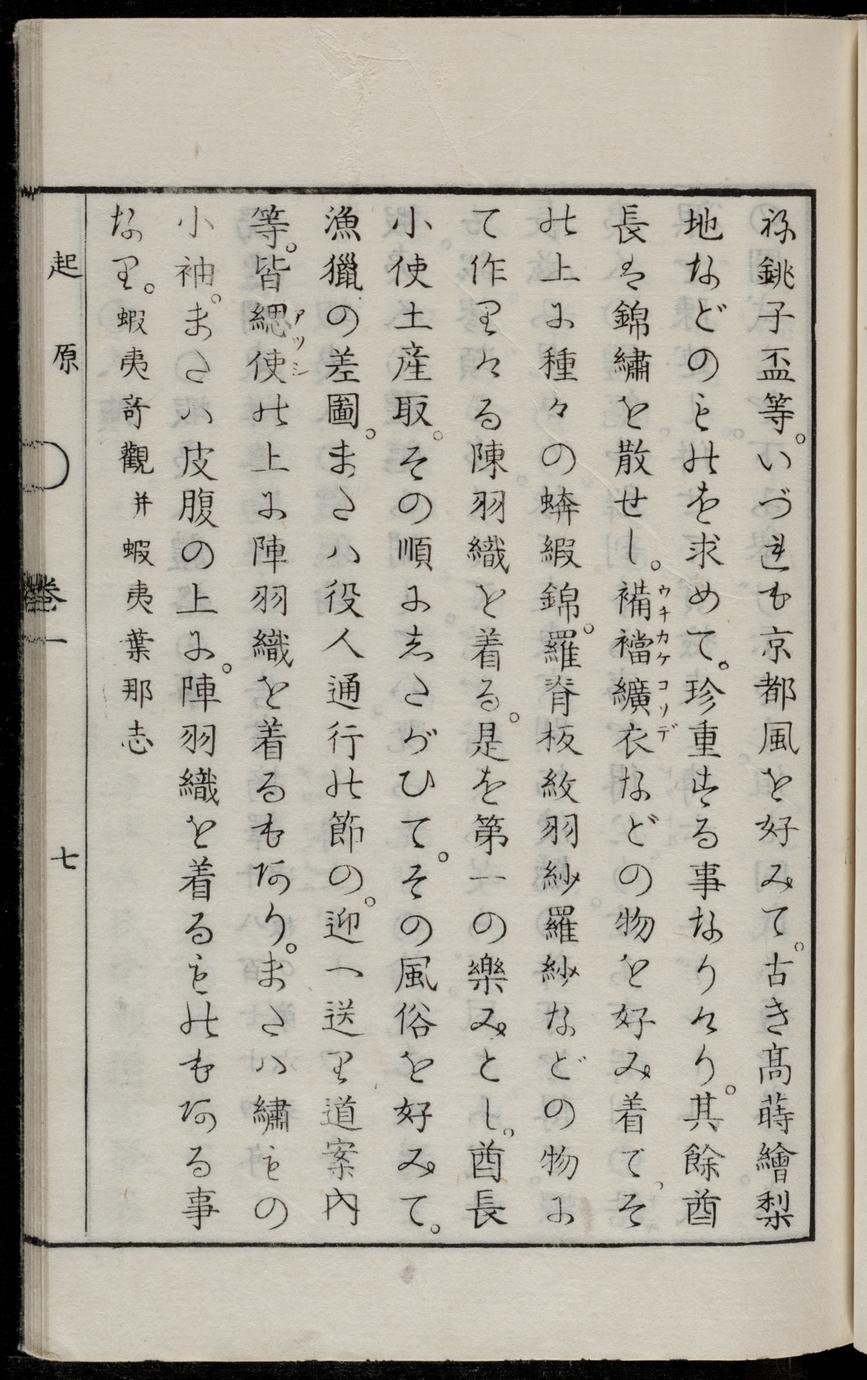 ね銚子盃等。いづれも京都風を好みて。古き髙蒔繪梨
地などのものを求めて。珍重する事なりけり。其餘酋
長は錦繡を散せし。𧛾襠纊衣などの物を好み着て、そ
ウキカケコソデ
の上に種々の蟒緞錦。羅脊板紋羽紗羅紗などの物に
て作りける陳羽織を着る。是を第一の樂みとし。酋長
小使土産取。その順にしたがひて。その風俗を好みて。
漁獵の差圖。または役人通行の節の。迎へ送り道案内
等。皆緦使の上に陣羽織を着るもあり。または繡もの
アツシ
小袖。または皮腹の上に。陣羽織を着るものもある事
なり。蝦夷奇觀并蝦夷葉那志
起原
卷一
七